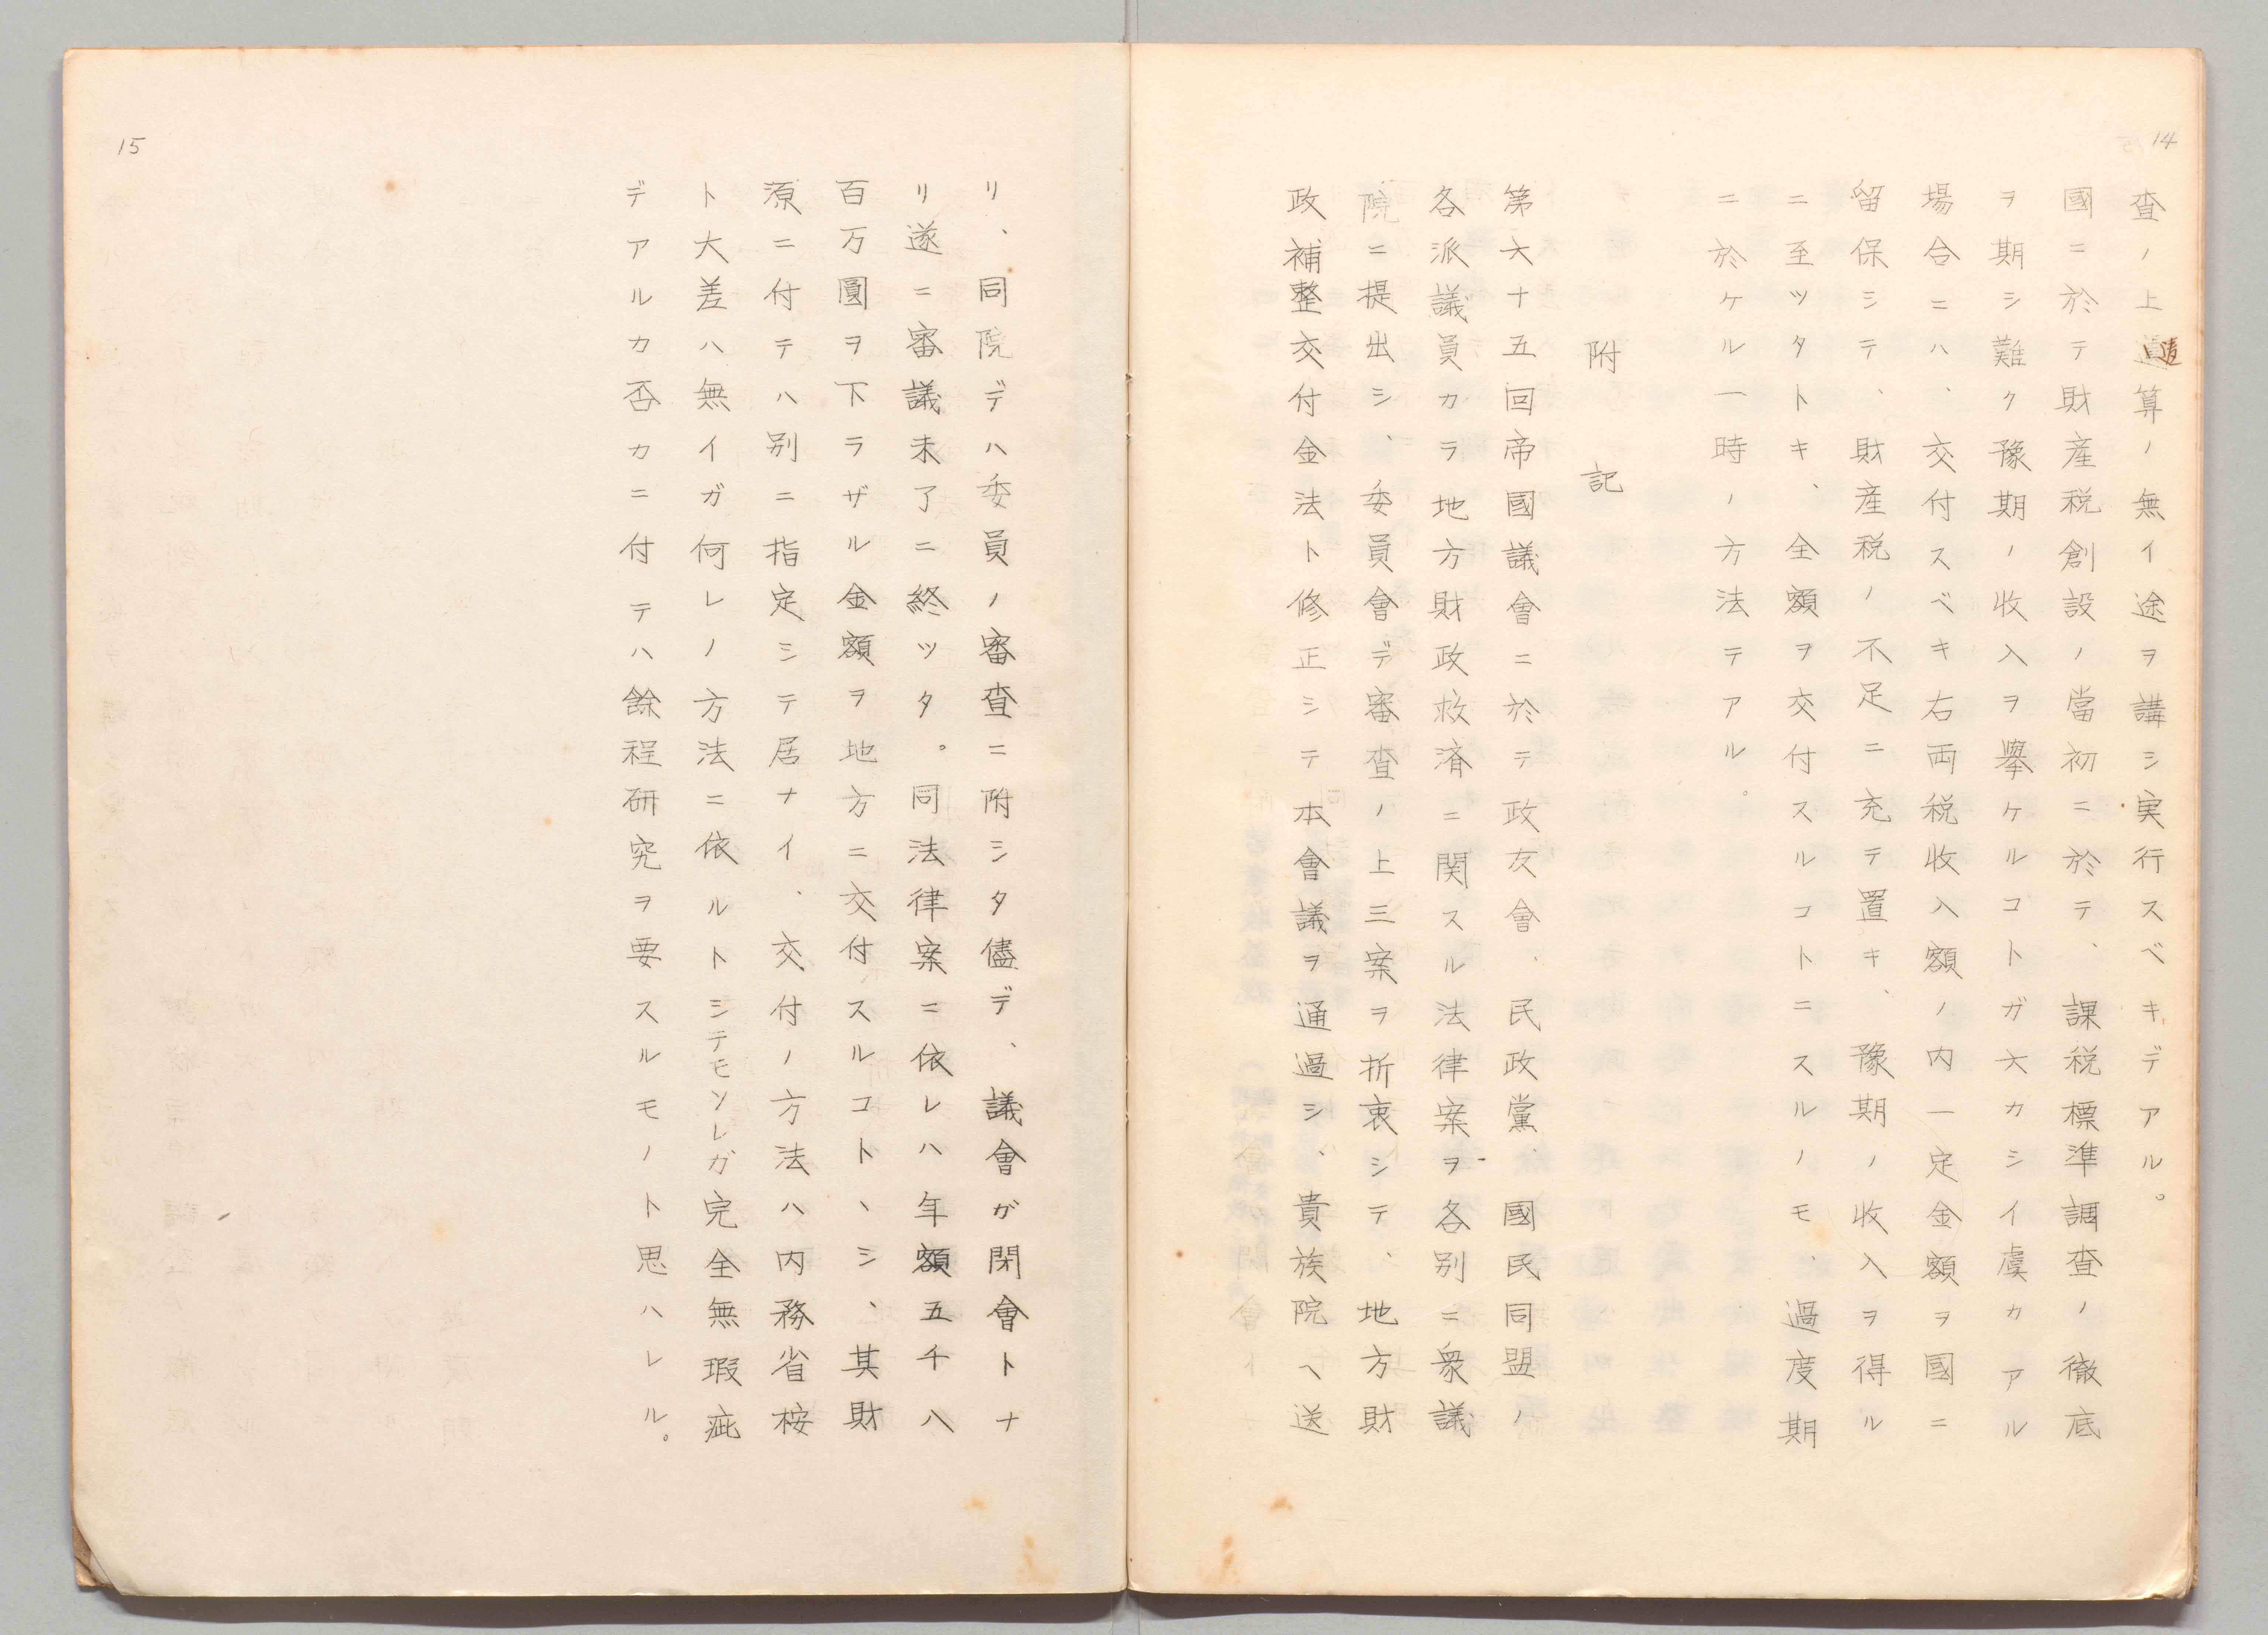 14
査ノ上違算ノ無イ途ヲ講シ実行スベキデアル。
國ニ於テ財産税創設ノ當初ニ於テ、課税標準調査ノ徹底
ヲ期シ難ク豫期ノ收入ヲ擧ケルコトガ大カシイ虞カアル
場合ニハ、交付スベキ右両税收入額ノ内一定金額ヲ國ニ
留保シテ、財産税ノ不足ニ充テ置キ、豫期ノ收入ヲ得ル
ニ至ツタトキ、全額ヲ交付スルコトニスルノモ、過度期
ニ於ケル一時ノ方法テアル。
附記
第六十五回帝國議會ニ於テ政友會、民政黨、國民同盟ノ
各派議員カラ地方財政救済ニ関スル法律案ヲ各別ニ衆議
院ニ提出シ、委員會デ審査ノ上三案ヲ折衷シテ、地方財
政補整交付金法ト修正シテ本會議ヲ通過シ、貴族院ヘ送
15
リ、同院デハ委員ノ審査ニ附シタ儘デ、議會ガ閉會トナ
リ遂ニ審議未了ニ終ツタ。同法律案ニ依レハ年額五千八
百万圓ヲ下ラザル金額ヲ地方ニ交付スルコトヽシ、其財
源ニ付テハ別ニ指定シテ居ナイ、交付ノ方法ハ内務省桉
ト大差ハ無イガ何レノ方法ニ依ルトシテモソレガ完全無瑕疵
デアルカ否カニ付テハ餘程研究ヲ要スルモノト思ハレル。